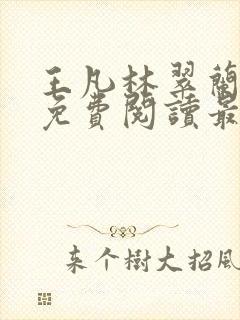 王凡林翠蘭
免費閱讀最
来个樹大招風